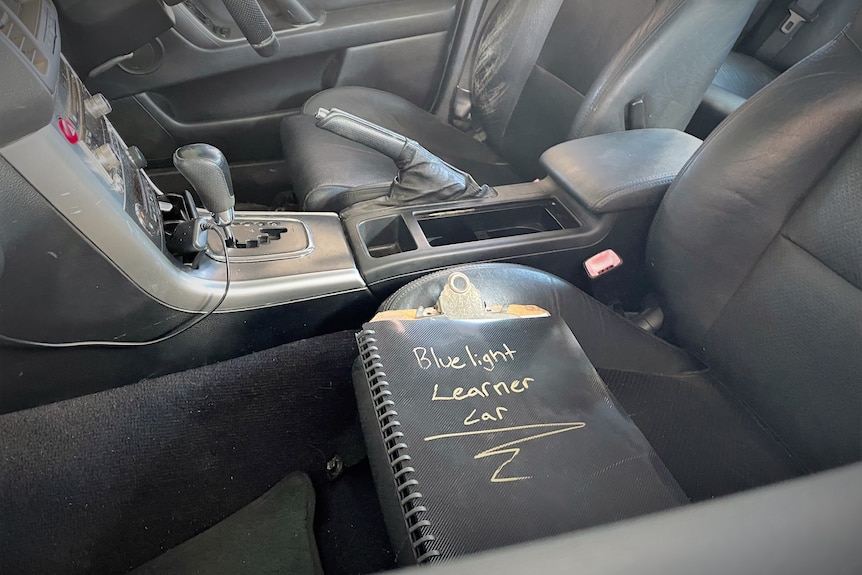 Bluelight
Learner
Car